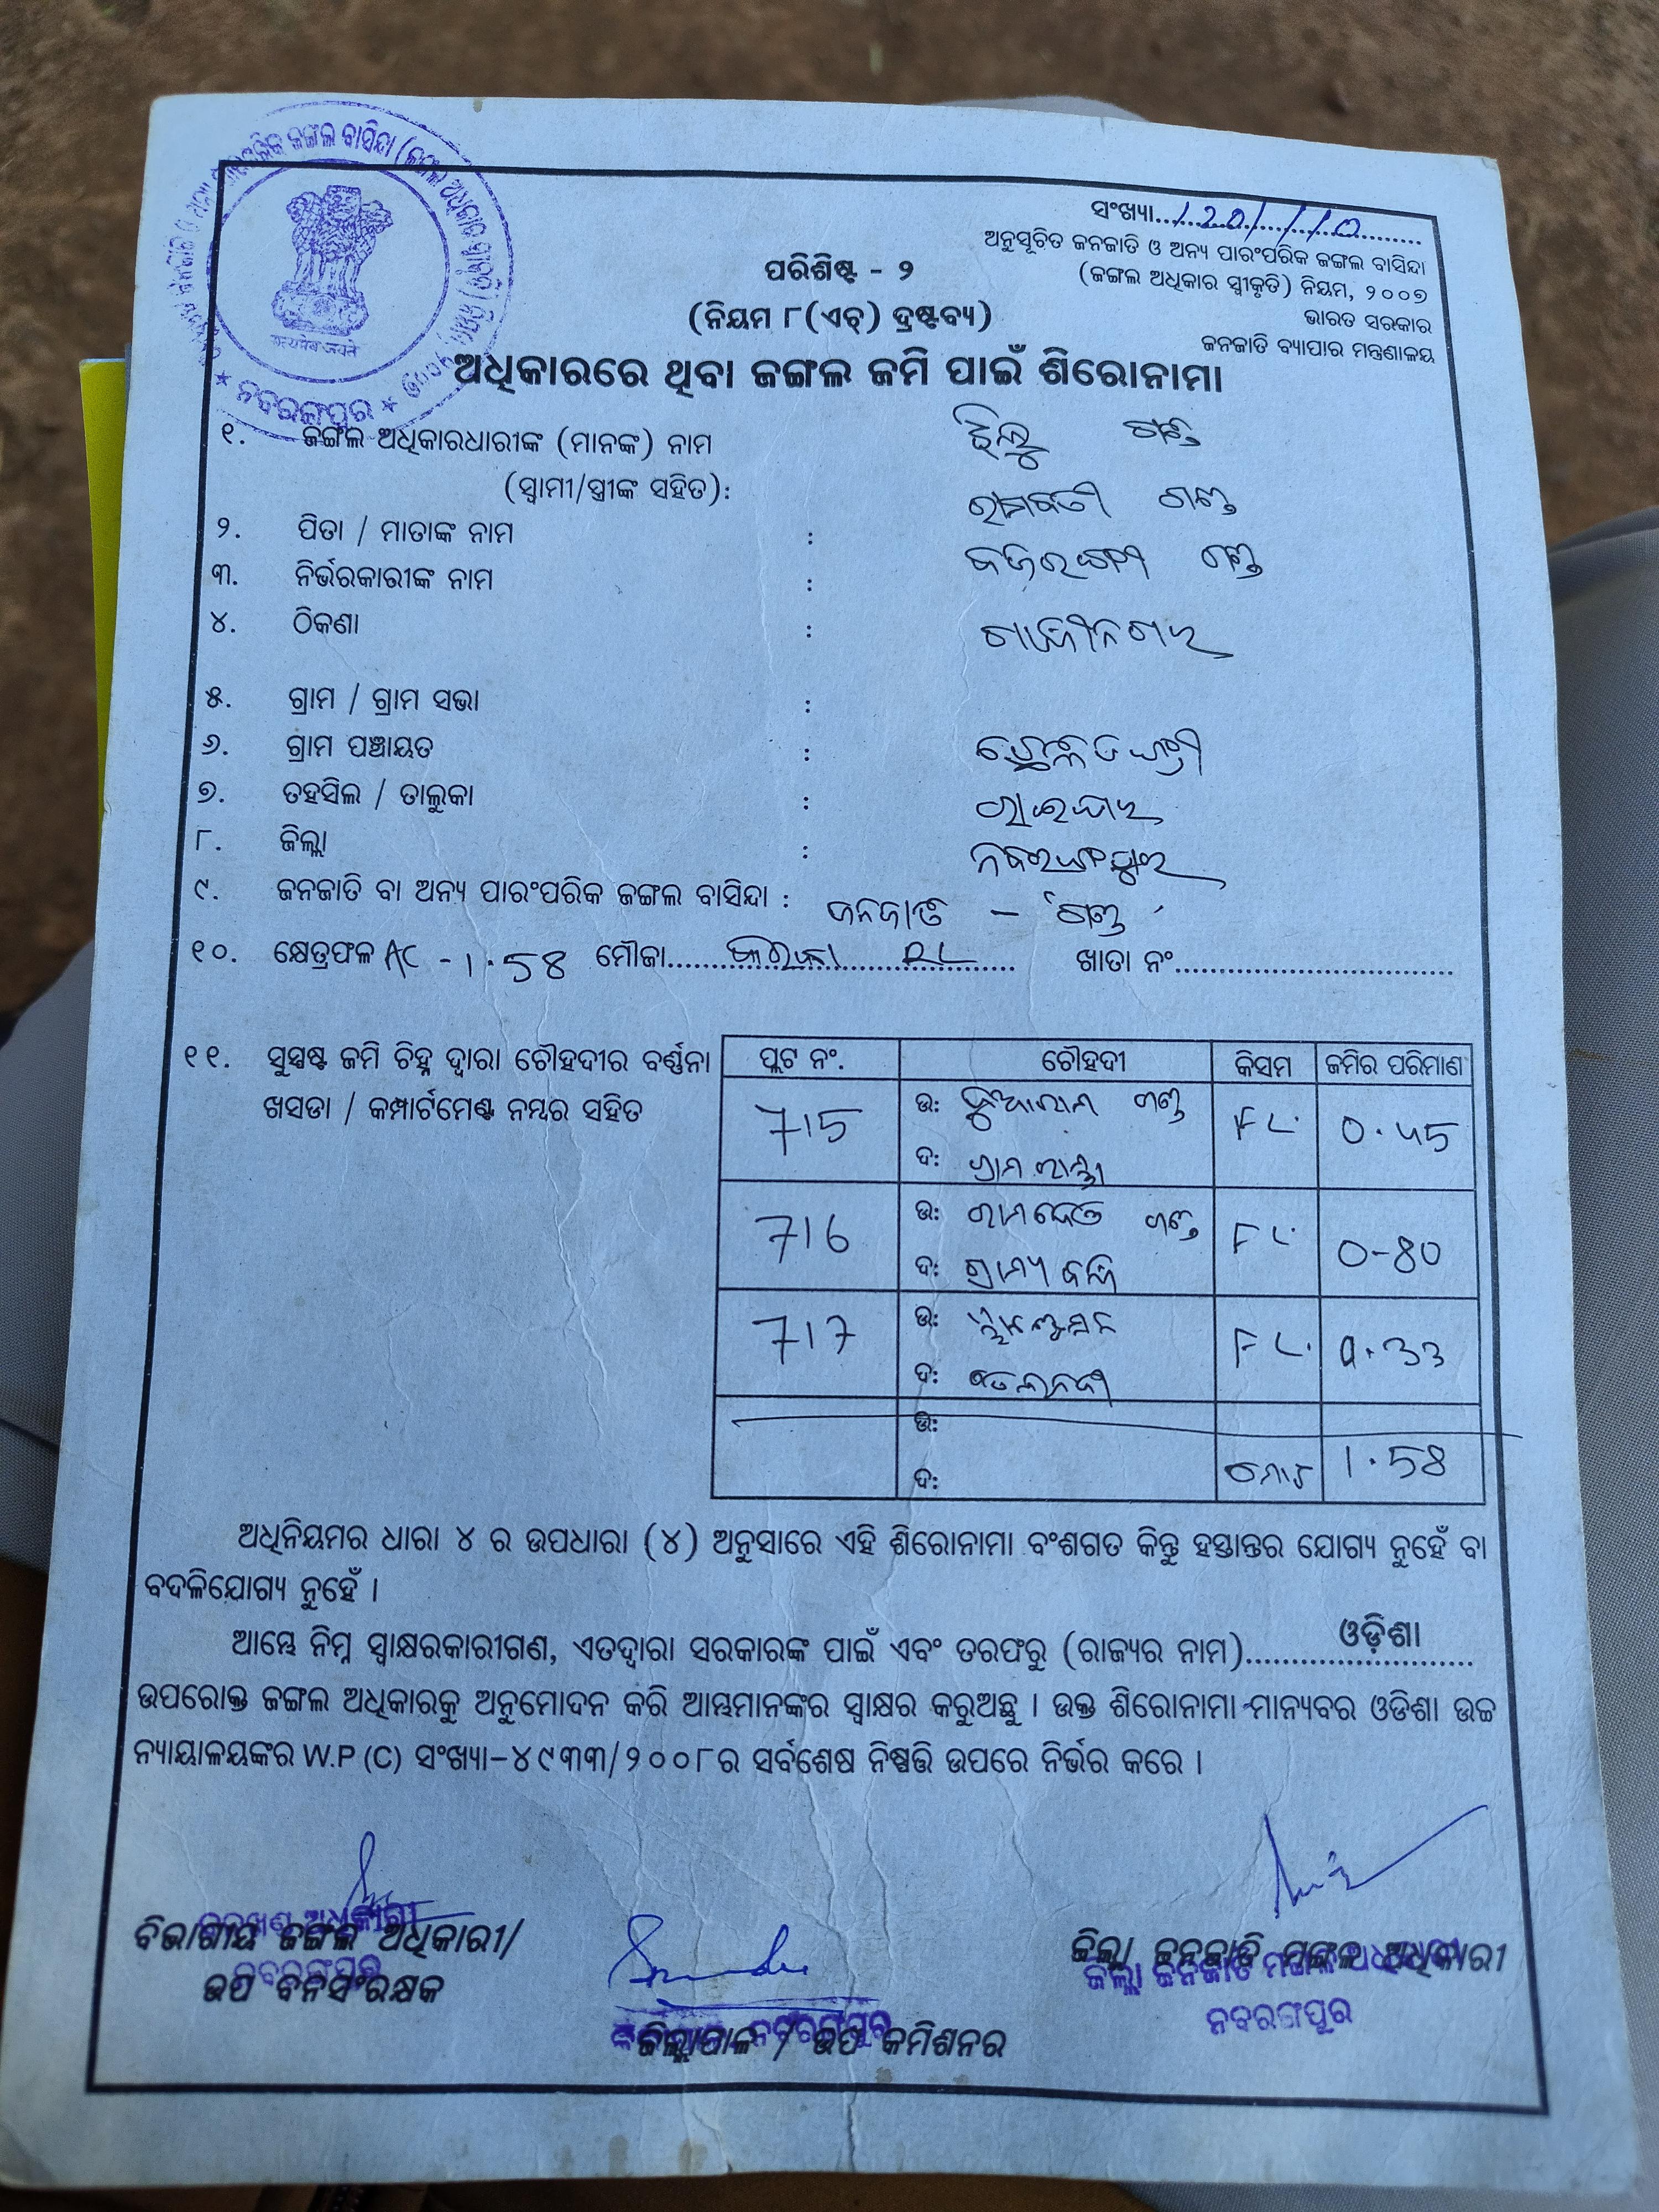 ସଂଖ୍ୟା.../20/.../10
ଅନୁସୂଚିତ ଜନଜାତି ଓ ଅନ୍ୟ ପାରଂପରିକ ଜଙ୍ଗଲ ବାସିନ୍ଦା
(ଜଙ୍ଗଲ ଅଧିକାର ସ୍ୱୀକୃତି) ନିୟମ, ୨୦୦୭
ଭାରତ ସରକାର
ଜନଜାତି ବ୍ୟାପାର ମନ୍ତ୍ରଣାଳୟ
ପରିଶିଷ୍ଟ - ୨
(ନିୟମ ୮(ଏଚ୍) ଦ୍ରଷ୍ଟବ୍ୟ)
ଅଧିକାରରେ ଥିବା ଜଙ୍ଗଲ ଜମି ପାଇଁ ଶିରୋନାମା
सत्यमेव जयते
ନବରଙ୍ଗପୁର
୧. ଜଙ୍ଗଲ ଅଧିକାରଧାରୀଙ୍କ (ମାନଙ୍କ) ନାମ ଝିଲୁ ଗଣ୍ଡ
(ସ୍ୱାମୀ/ସ୍ତ୍ରୀଙ୍କ ସହିତ): ରାମବତୀ ଗଣ୍ଡ
୨. ପିତା / ମାତାଙ୍କ ନାମ : ଗଣ୍ଡ
୩. ନିର୍ଭରକାରୀଙ୍କ ନାମ :
୪. ଠିକଣା : ଗାନ୍ଧୀନଗର
୫. ଗ୍ରାମ / ଗ୍ରାମ ସଭା :
୬. ଗ୍ରାମ ପଞ୍ଚାୟତ :
୭. ତହସିଲ / ତାଲୁକା : ରାଇଘର
୮. ଜିଲ୍ଲା : ନବରଙ୍ଗପୁର
୯. ଜନଜାତି ବା ଅନ୍ୟ ପାରଂପରିକ ଜଙ୍ଗଲ ବାସିନ୍ଦା : ଜନଜାତି - 'ଗଣ୍ଡ'
୧୦. କ୍ଷେତ୍ରଫଳ AC - 1.58 ମୌଜା............ RL ...... ଖାତା ନଂ...............................
୧୧. ସୁସ୍ପଷ୍ଟ ଜମି ଚିହ୍ନ ଦ୍ୱାରା ଚୌହଦୀର ବର୍ଣ୍ଣନା
ଖସଡା / କମ୍ପାର୍ଟମେଣ୍ଟ ନମ୍ବର ସହିତ
ପ୍ଲଟ ନଂ. ଚୌହଦୀ କିସମ ଜମିର ପରିମାଣ
715 ଉ: ଗଣ୍ଡ FL. 0.45
ଦ:
716 ଉ: ଗଣ୍ଡ FL. 0-80
ଦ: ଗ୍ରାମ୍ୟ ଜଙ୍ଗଲ
717 ଉ: FL. 0.33
ଦ:
ଉ:
ଦ: ମୋଟ 1.58
ଅଧିନିୟମର ଧାରା ୪ ର ଉପଧାରା (୪) ଅନୁସାରେ ଏହି ଶିରୋନାମା ବଂଶଗତ କିନ୍ତୁ ହସ୍ତାନ୍ତର ଯୋଗ୍ୟ ନୁହେଁ ବା
ବଦଳିଯୋଗ୍ୟ ନୁହେଁ ।
ଆମ୍ଭେ ନିମ୍ନ ସ୍ୱାକ୍ଷରକାରୀଗଣ, ଏତଦ୍ୱାରା ସରକାରଙ୍କ ପାଇଁ ଏବଂ ତରଫରୁ (ରାଜ୍ୟର ନାମ)......ଓଡ଼ିଶା......
ଉପରୋକ୍ତ ଜଙ୍ଗଲ ଅଧିକାରକୁ ଅନୁମୋଦନ କରି ଆମ୍ଭମାନଙ୍କର ସ୍ୱାକ୍ଷର କରୁଅଛୁ । ଉକ୍ତ ଶିରୋନାମା ମାନ୍ୟବର ଓଡିଶା ଉଚ୍ଚ
ନ୍ୟାୟାଳୟଙ୍କର W.P (C) ସଂଖ୍ୟା-୪୯୩୩/୨୦୦୮ର ସର୍ବଶେଷ ନିଷ୍ପତ୍ତି ଉପରେ ନିର୍ଭର କରେ ।
ବିଭାଗୀୟ ଜଙ୍ଗଲ ଅଧିକାରୀ/
ଉପ ବନସଂରକ୍ଷକ
ନବରଙ୍ଗପୁର
ଜିଲ୍ଲାପାଳ / ଉପ କମିଶନର
ନବରଙ୍ଗପୁର
ଜିଲ୍ଲା ଜନଜାତି ମଙ୍ଗଳ ଅଧିକାରୀ
ଜିଲ୍ଲା ଜନଜାତି ମଙ୍ଗଳ ଅଧିକାରୀ
ନବରଙ୍ଗପୁର